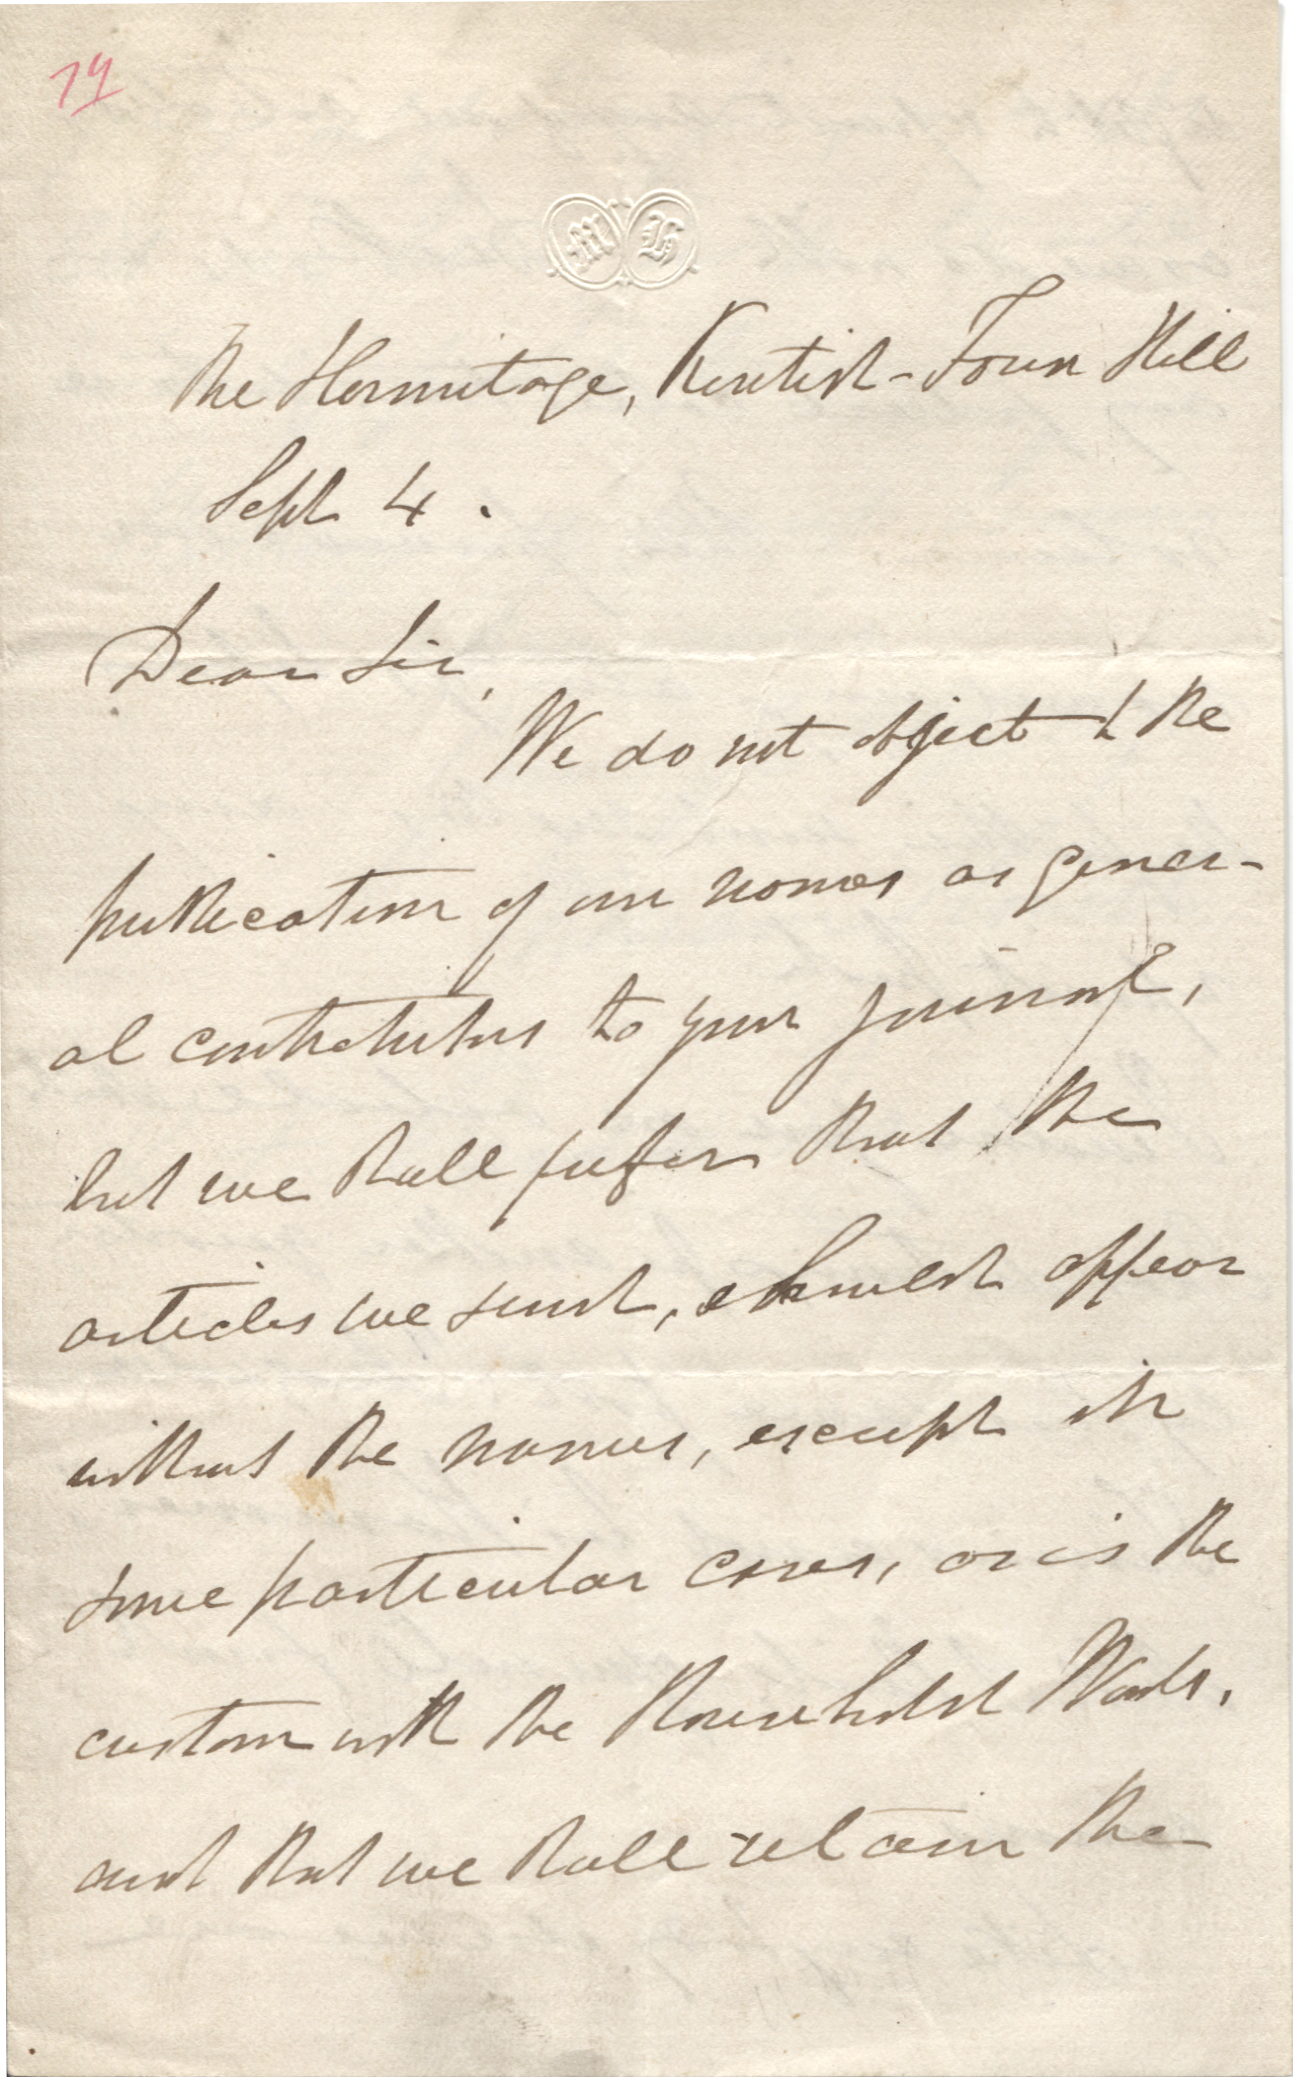 79
M H
The Hermitage, Kentish-Town Hill
Sept 4.
Dear Sir,
We do not object to the
publication of our names as gener-
al contributors to your journal,
but we shall prefer that the
articles we send, should appear
without the names, except in
some particular cases, as is the
custom with the Household Words,
and that we shall retain the